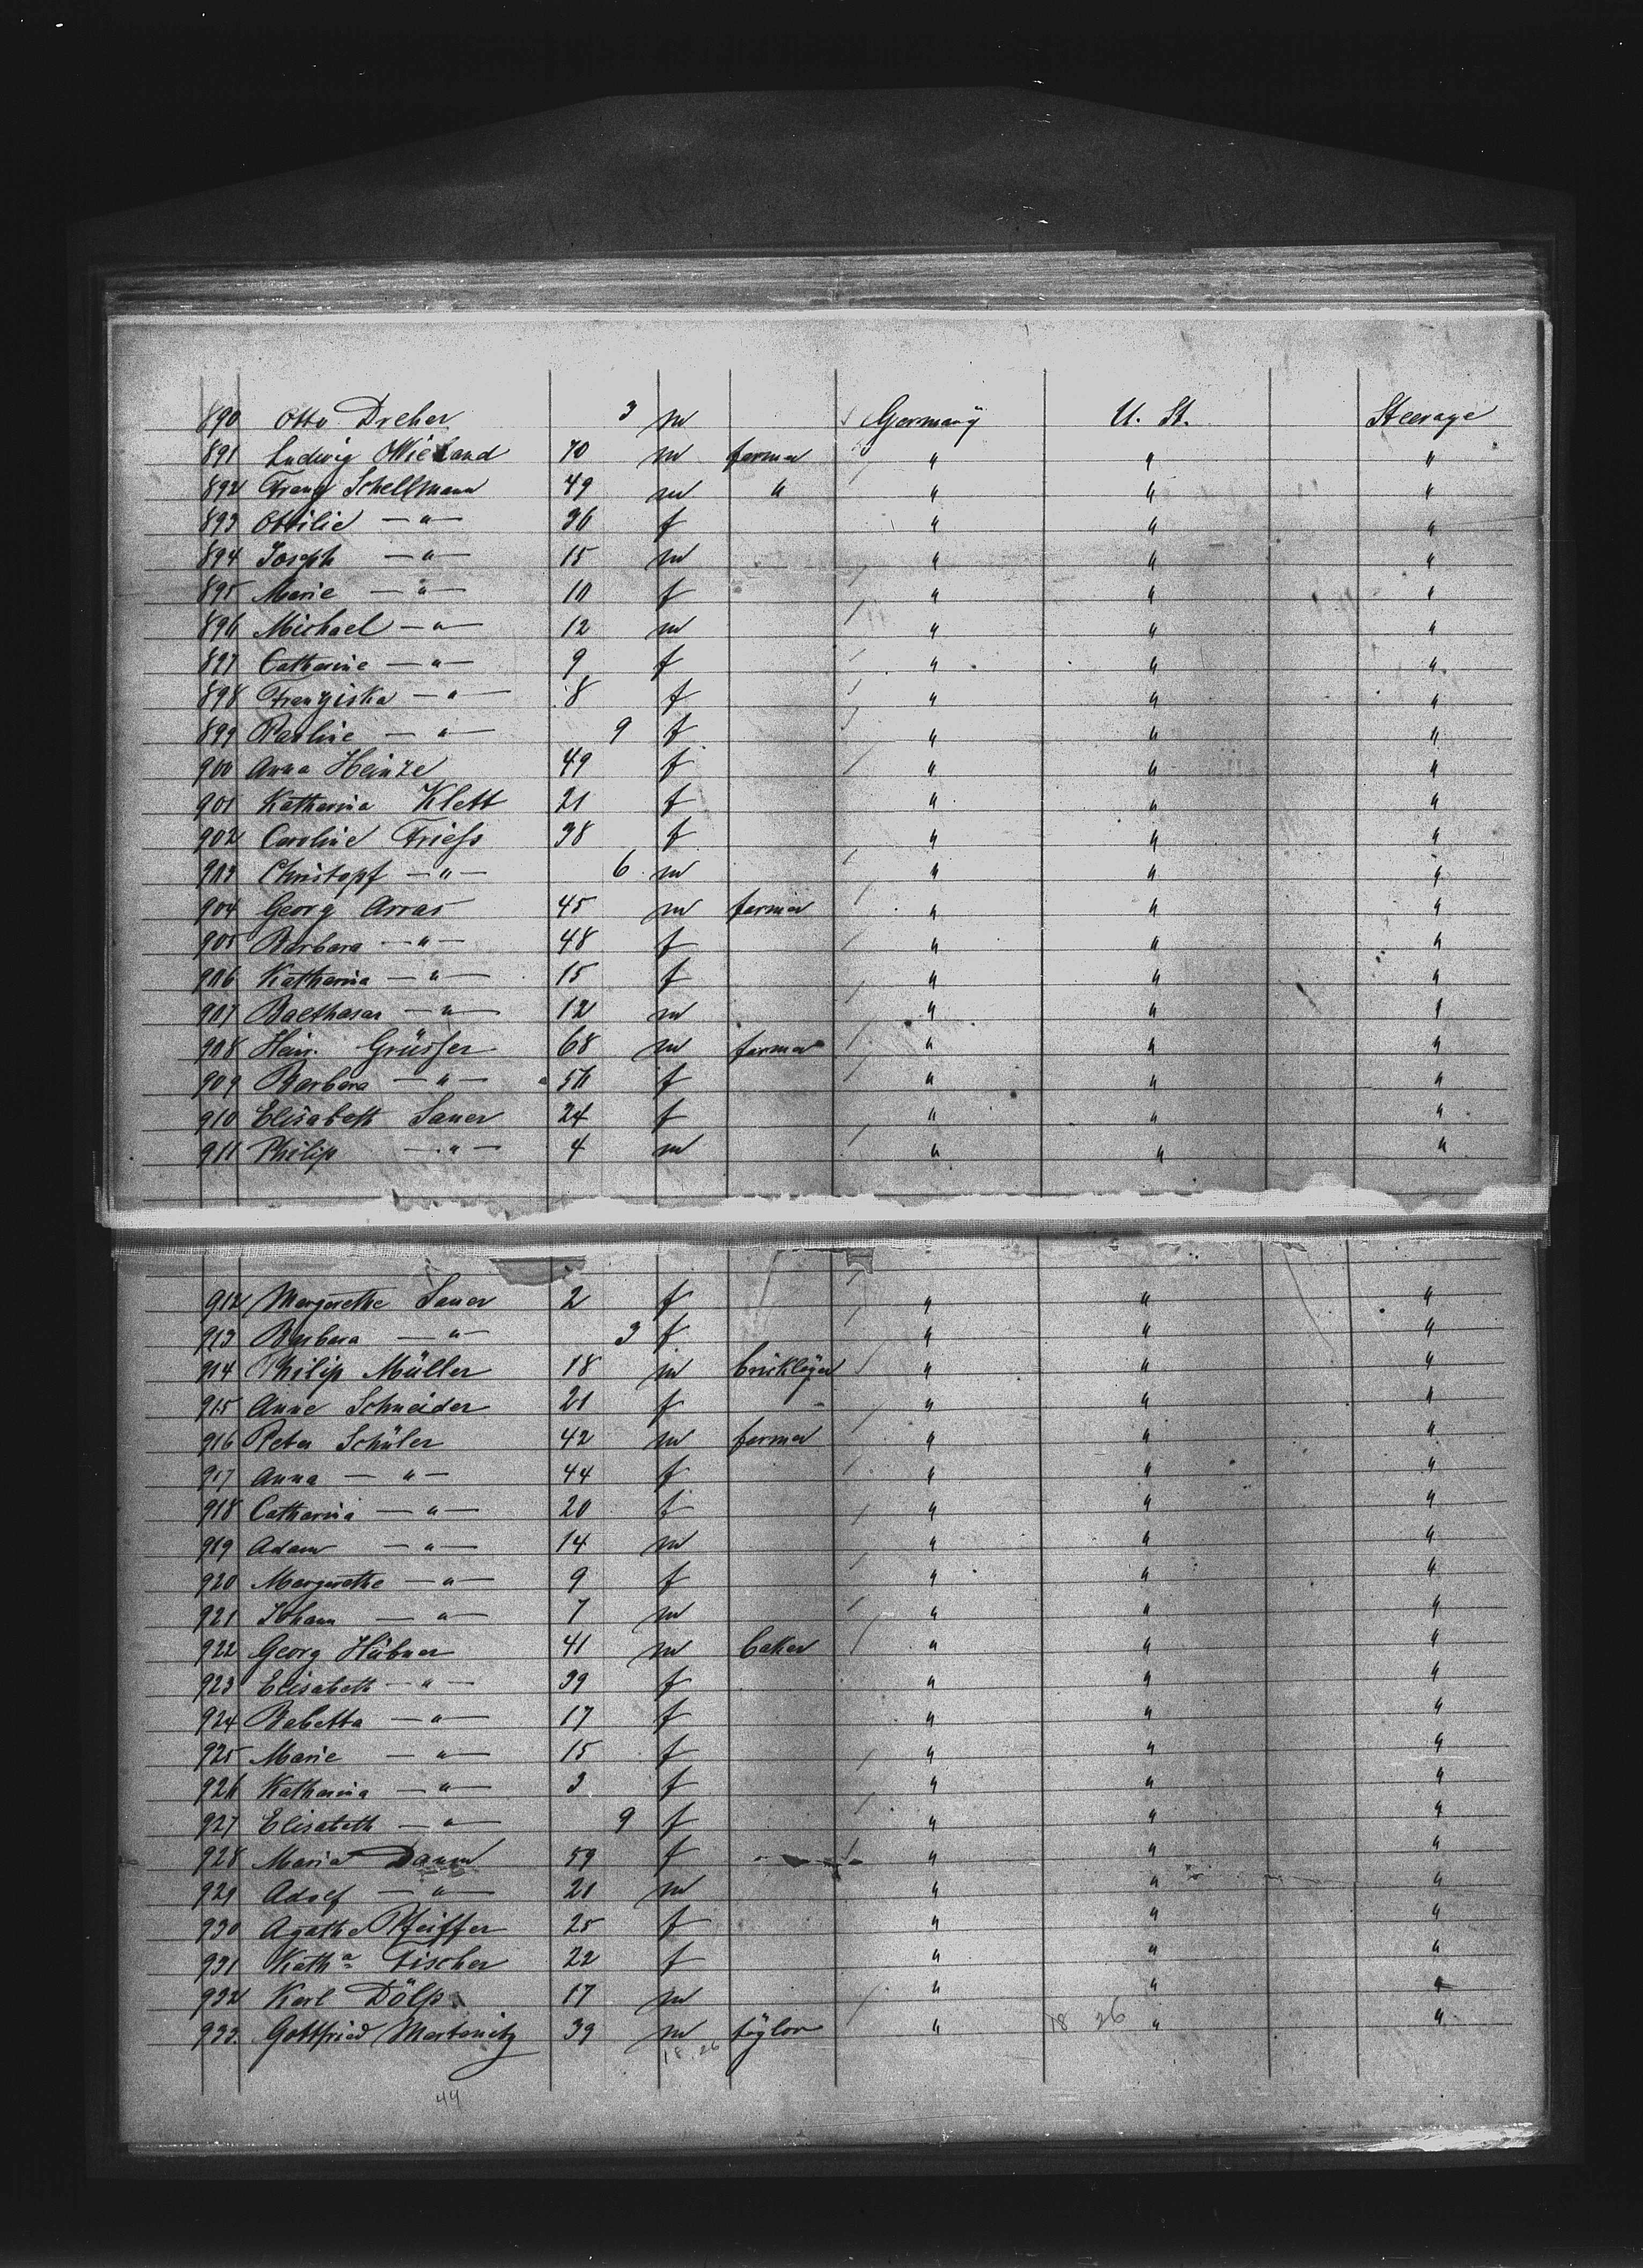 890 Otto Dreher 3 m Germany U. St. Steerage
891 Ludwig Wieland 70 m farmer " " "
892 Franz Schellmann 49 m " " " "
893 Ottilie —"— 36 f " " "
894 Joseph —"— 15 m " " "
895 Marie —"— 10 f " " "
896 Michael —"— 12 m " " "
897 Catharine —"— 9 f " " "
898 Franziska —"— 8 f " " "
899 Pauline —"— 9 f " " "
900 Anna Heinze 49 f " " "
901 Katharina Klett 21 f " " "
902 Caroline Friess 38 f " " "
903 Christopf —"— 6 m " " "
904 Georg Arras 45 m farmer " " "
905 Barbara —"— 48 f " " "
906 Katharina —"— 15 f " " "
907 Balthasar —"— 12 m " " "
908 Heinr. Grüsser 68 m farmer " " "
909 Barbara —"— 50 f " " "
910 Elisabeth Sauer 24 f " " "
911 Philip —"— 4 m " " "
912 Margarethe Sauer 2 f " " "
913 Barbara —"— 3 f " " "
914 Philip Müller 18 m brickläyer " " "
915 Anne Schneider 21 f " " "
916 Peter Schüler 42 m farmer " " "
917 Anna —"— 44 f " " "
918 Catharina —"— 20 f " " "
919 Adam —"— 14 m " " "
920 Margarethe —"— 9 f " " "
921 Johann —"— 7 m " " "
922 Georg Hübner 41 m baker " " "
923 Elisabeth —"— 39 f " " "
924 Babetta —"— 17 f " " "
925 Marie —"— 15 f " " "
926 Katharina —"— 3 f " " "
927 Elisabeth —"— 9 f " " "
928 Maria Damm 59 f " " "
929 Adolf —"— 21 m " " "
930 Agathe Pfeiffer 25 f " " "
931 Katha Fischer 22 f " " "
932 Karl Dölp 17 m " " "
933. Gottfried Martonitz 39 m täylor " 18 26 " "
18 26
44